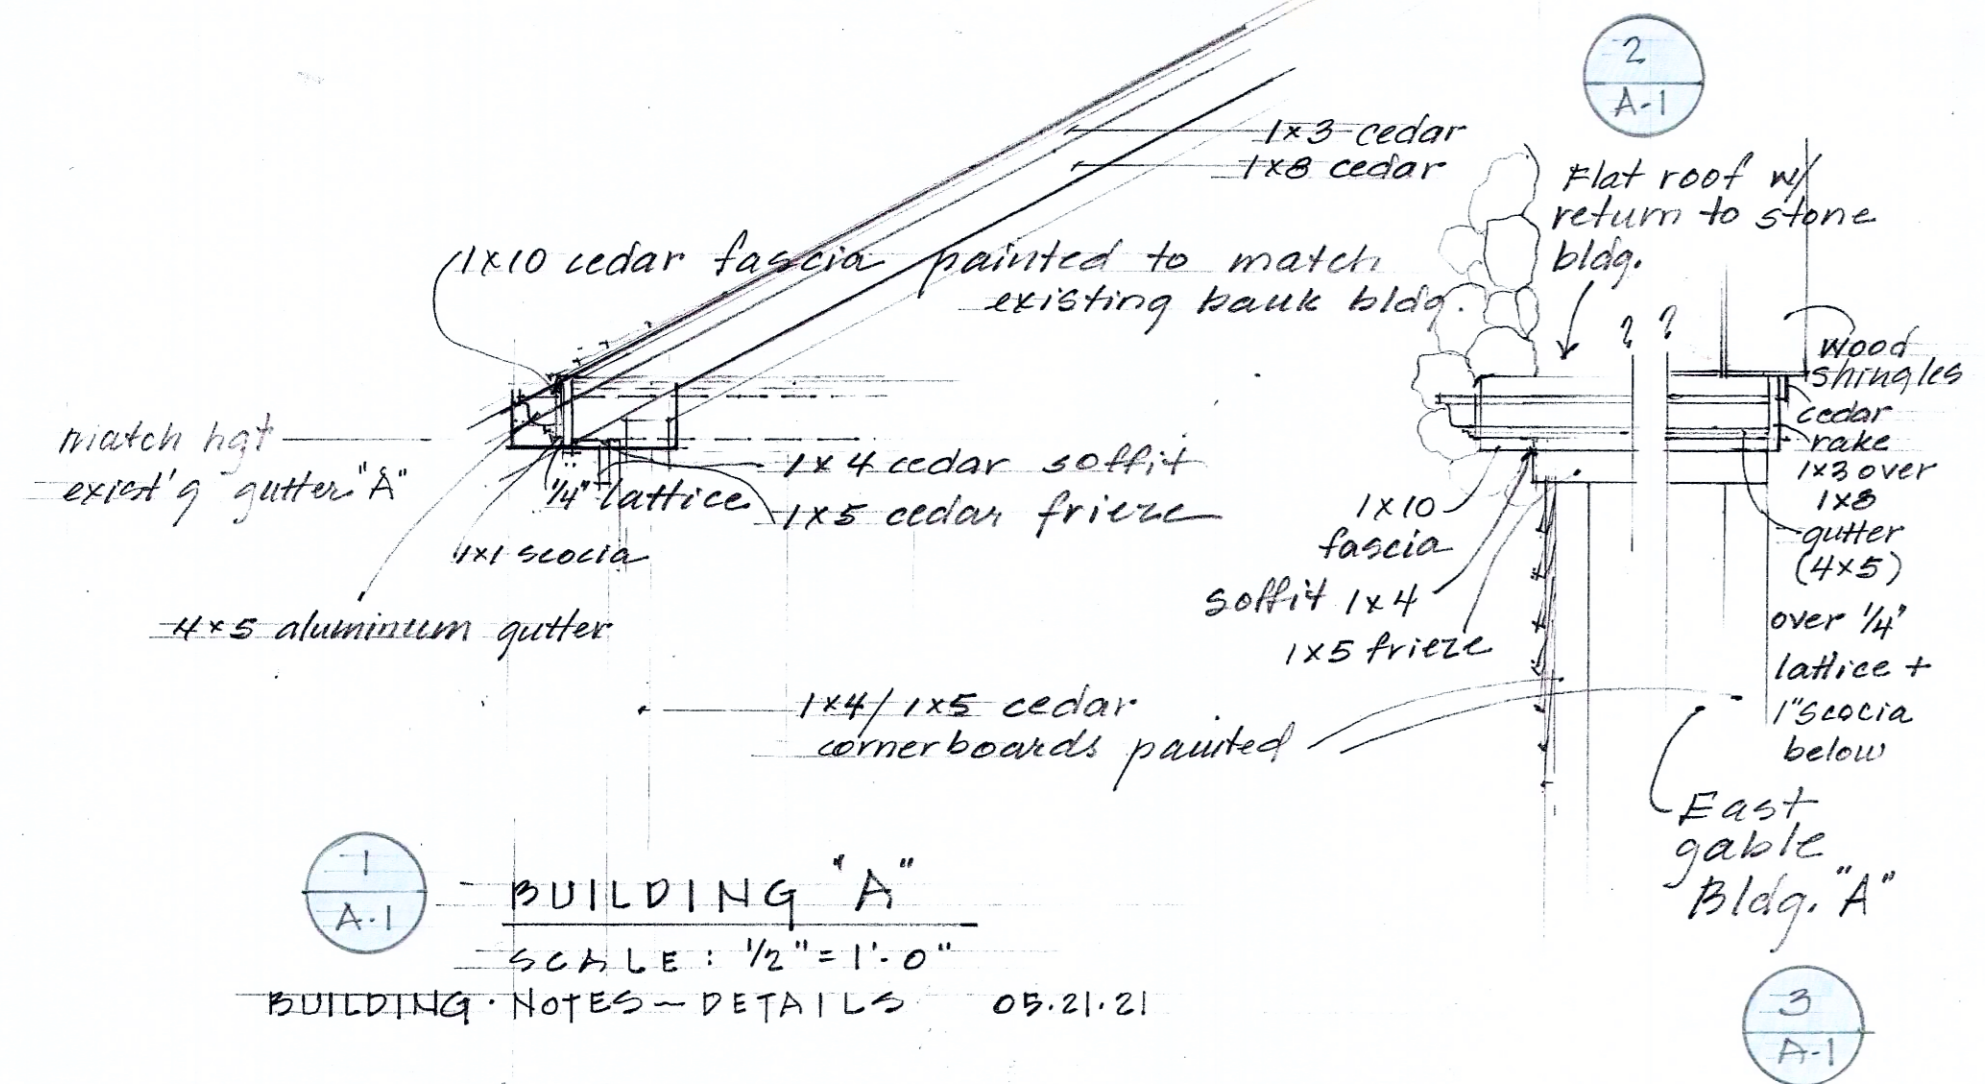 2
A-1
1x3 cedar
1x8 cedar
Flat roof w/
return to stone
bldg.
1x10 cedar fascia painted to match
existing bank bldg.
? ?
wood
shingles
cedar
rake
1x3 over
1x8
gutter
(4x5)
over 1/4"
lattice +
1" scocia
below
match hgt
exist'g gutter "A"
1x4 cedar soffit
1/4" lattice
1x5 cedar frieze
1x1 scocia
4x5 aluminum gutter
1x10
fascia
soffit 1x4
1x5 frieze
1x4/1x5 cedar
cornerboards painted
East
gable
Bldg. "A"
1
A-1
BUILDING "A"
SCALE: 1/2" = 1'-0"
BUILDING · NOTES — DETAILS 05.21.21
3
A-1